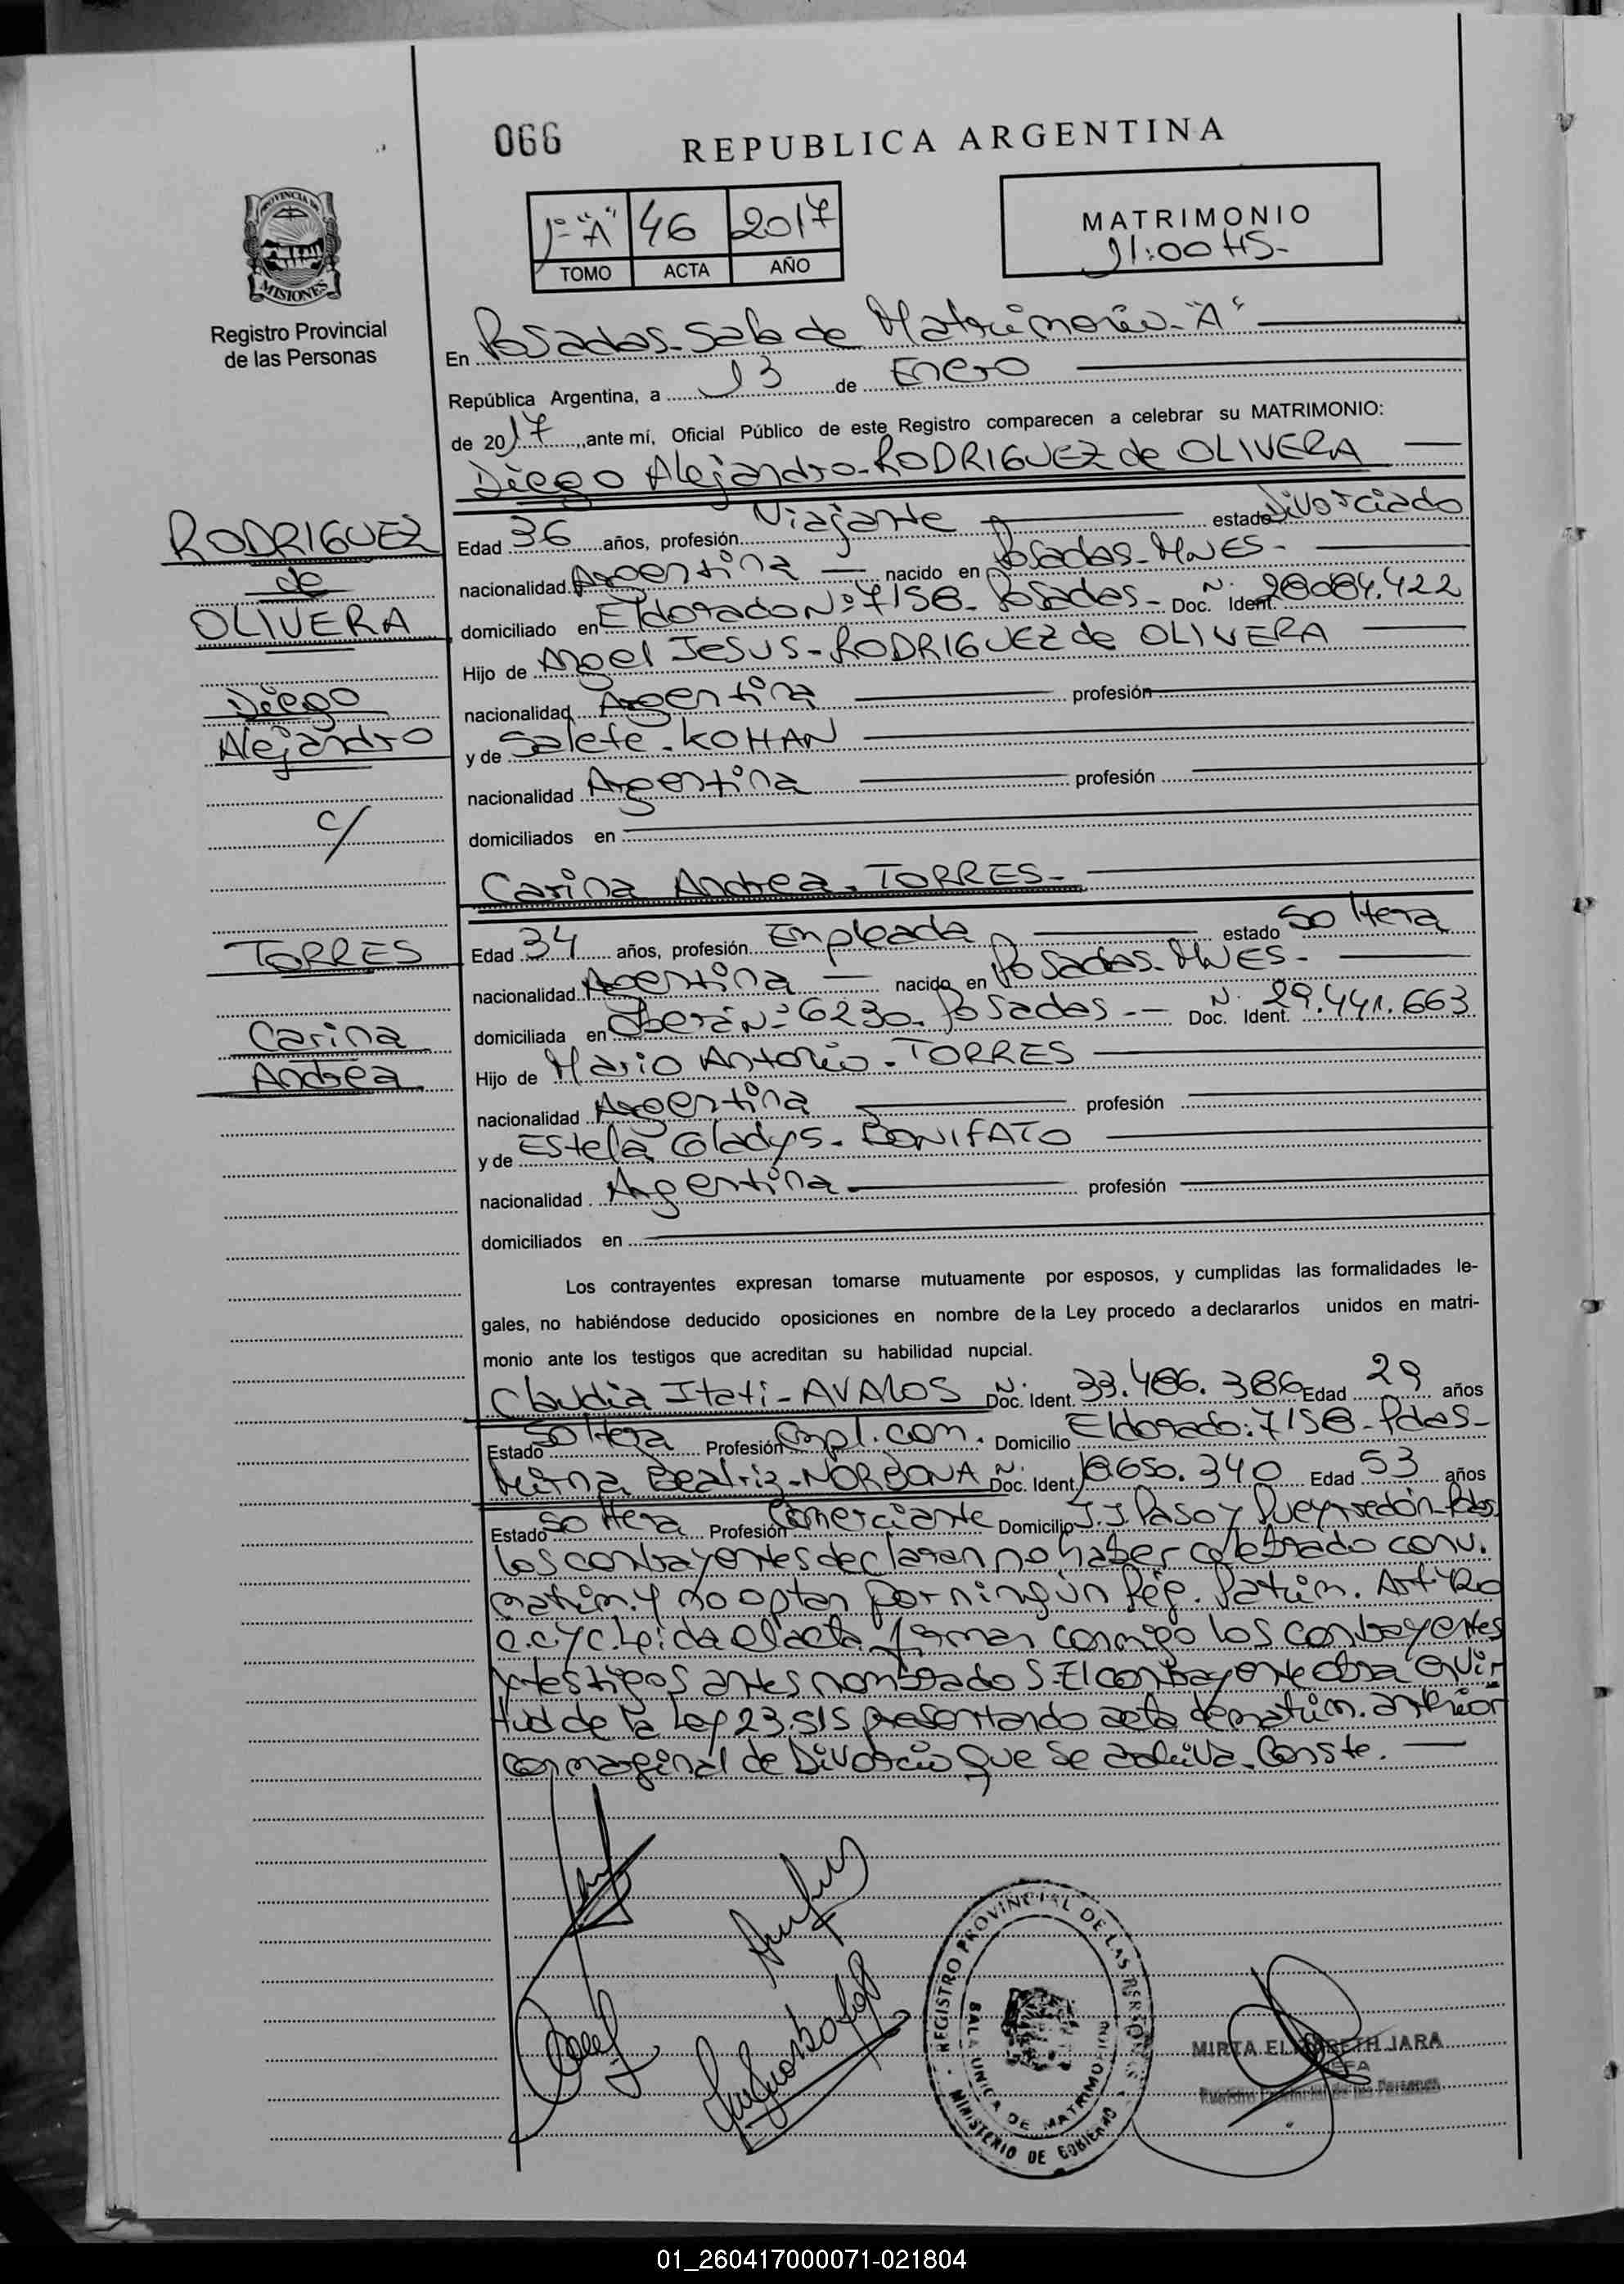 066
REPUBLICA ARGENTINA
1º "A" 46 2017
TOMO ACTA AÑO
MATRIMONIO
11:00 HS-
PROVINCIA DE
MISIONES
Registro Provincial
de las Personas
En Posadas-Sala de Matrimonio-"A"
República Argentina, a 13 de Enero
de 2017, ante mí, Oficial Público de este Registro comparecen a celebrar su MATRIMONIO:
Diego Alejandro-RODRIGUEZ de OLIVERA
RODRIGUEZ
de
OLIVERA
Diego
Alejandro
c/
TORRES
Carina
Andrea
Edad 36 años, profesión Viajante estado Divorciado
nacionalidad Argentina nacido en Posadas-MNES-
domiciliado en Eldorado Nº 7158- Posadas- Doc. Ident. Nº 28084.422
Hijo de Angel Jesus-RODRIGUEZ de OLIVERA
nacionalidad Argentina profesión
y de Salete-KOHAN
nacionalidad Argentina profesión
domiciliados en
Carina Andrea-TORRES-
Edad 34 años, profesión Empleada estado Soltera
nacionalidad Argentina nacido en Posadas-MNES-
domiciliada en Oberá Nº 6230. Posadas-- Doc. Ident. Nº 29.441.663
Hijo de Mario Antonio-TORRES
nacionalidad Argentina profesión
y de Estela Gladys-BONIFATO
nacionalidad Argentina profesión
domiciliados en
Los contrayentes expresan tomarse mutuamente por esposos, y cumplidas las formalidades le-
gales, no habiéndose deducido oposiciones en nombre de la Ley procedo a declararlos unidos en matri-
monio ante los testigos que acreditan su habilidad nupcial.
Claudia Itati-AVALOS Doc. Ident. Nº 33.486.386 Edad 29 años
Estado Soltera Profesión Empl. com. Domicilio Eldorado: 7158-Pdas-
Mirna Beatriz-NORBONA Doc. Ident. Nº 18.650.340 Edad 53 años
Estado Soltera Profesión Comerciante Domicilio J.J. Paso y Pueyrredón-Pdas
Los contrayentes declaran no haber celebrado conv.
matrim. y no optan por ningún Rég. Patrim. Art 420
C.C y C. Leída el acta firman conmigo los contrayentes
y testigos antes nombrados-El contrayente obra en vir-
tud de la Ley 23.515 presentando acta de matrim. anterior
con marginal de Divorcio que se archiva. Conste.
REGISTRO PROVINCIAL DE LAS PERSONAS
SALA UNICA DE MATRIMONIO
MINISTERIO DE GOBIERNO
MIRTA ELIZABETH JARA
JEFA
Registro Provincial de las Personas
01_260417000071-021804